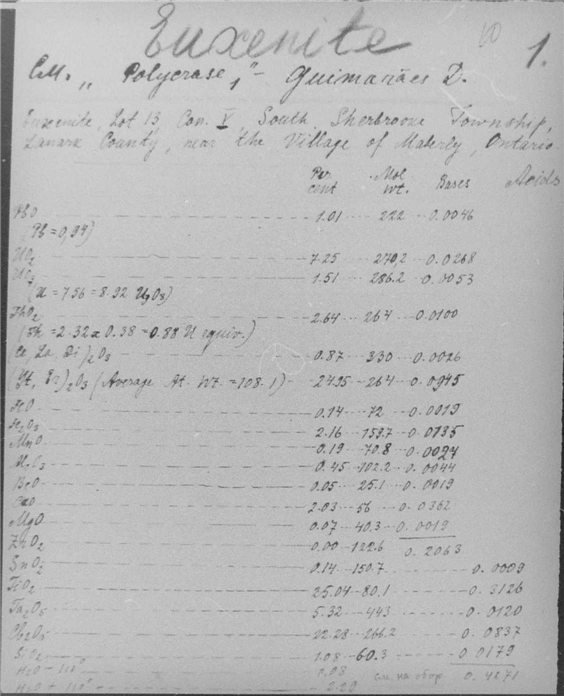 Euxenite
1.
См. „ Polycrase, "- Guimarães D.
Euxenite, Lot 13, Con. V, South Sherbrooke Township,
Lanark County, near the Village of Maberly, Ontario.
Per cent Mol. wt. Bases Acids
PbO 1.01 222 0.0046
(Pb = 0,94)
UO2 7.25 270,2 0.0268
UO3 1.51 286.2 0.0053
(U = 7.56 = 8.92 U3O8)
ThO2 2.64 264 0.0100
(Th = 2.32 x 0.38 = 0.88 U equiv.)
(Ce, La, Di)2O3 0.87 330 0.0026
(Yt, Er)2O3 (Average At. Wt. = 108.1) 24.95 264 0.0945
FeO 0.14 72 0.0019
Fe2O3 2.16 159.7 0.0135
MnO 0.19 70.8 0.0027
Al2O3 0.45 102.2 0.0044
BeO 0.05 25.1 0.0019
CaO 2.03 56 0.0362
MgO 0.07 40.3 0.0019
ZrO2 0.00 122.6 0.2063
SnO2 0.14 150.7 0.0009
TiO2 25.04 80.1 0.3126
Ta2O5 5.32 443 0.0120
Cb2O5 22.28 266.2 0.0837
SiO2 1.08 60.3 0.0179
H2O - 110° 0.08 см. на обор. 0.4271
H2O + 110° 2.29